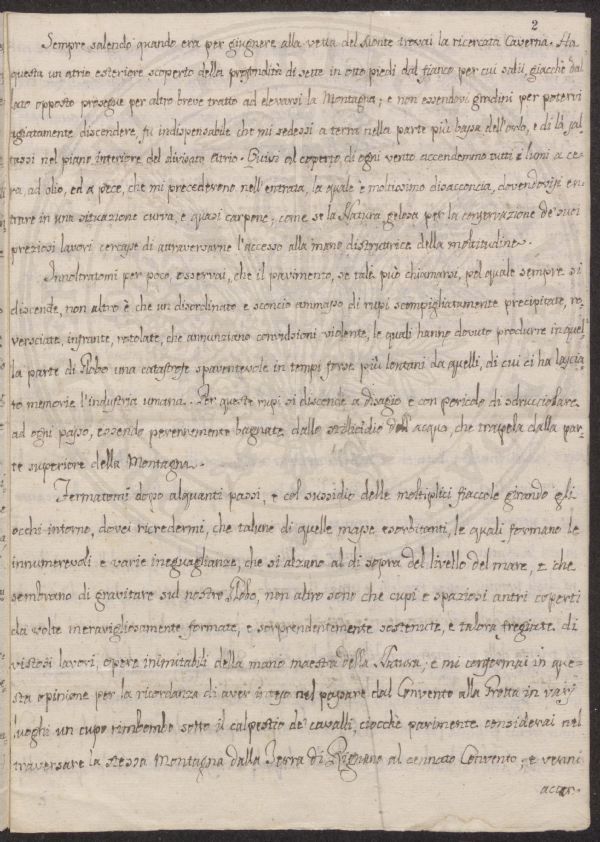 2
Sempre salendo quando era per giugnere alla vetta del Monte trovai la ricercata Caverna. Ha
questa un atrio esteriore scoperto della profondità di sette in otto piedi dal fianco per cui salii, giacchè dal
lato opposto prosegue per altro breve tratto ad elevarsi la Montagna; e non essendovi gradini per potervi
agiatamente discendere, fu indispensabile che mi sedessi a terra nella parte più bassa dell'orlo, e di là sal=
tassi nel piano inferiore del divisato Atrio. Quivi al coperto di ogni vento accendemmo tutti i lumi a ce=
ra, ad olio, ed a pece, che mi precedereno nell'entrata, la quale è moltissimo disacconcia, dovendovisi en=
trare in una situazione curva, e quasi carpone; come se la Natura gelosa per la conservazione de' suoi
preziosi lavori cercasse di attraversarne l'accesso alla mano distruttrice della moltitudine.
Innoltratomi per poco, osservai, che il pavimento, se tale può chiamarsi, pel quale sempre si
discende, non altro è che un disordinato e sconcio ammasso di rupi scompigliatamente precipitate, ro=
vesciate, infrante, rotolate, che annunziano convulsioni violente, le quali hanno dovuto produrre in quel=
la parte di Globo una catastrofe spaventevole in tempi forse più lontani da quelli, di cui ci ha lascia=
to memorie l'industria umana. Per queste rupi si discende a disagio e con pericolo di sdrucciolare
ad ogni passo, essendo perennemente bagnate dallo stillicidio dell'acqua, che trapela dalla par=
te superiore della Montagna.
Fermatomi dopo alquanti passi, e col sussidio delle moltiplici fiaccole girando gli
occhi intorno, dovei ricredermi, che talune di quelle masse esorbitanti, le quali formano le
innumerevoli e varie ineguaglianze, che si alzano al di sopra del livello del mare, e che
sembrano di gravitare sul nostro Globo, non altro sono che cupi e spaziosi antri coperti
da volte meravigliosamente formate, e sorprendentemente sostenute, e talora fregiate di
vistosi lavori, opere inimitabili della mano maestra della Natura; e mi confermai in que=
sta opinione per la ricordanza di aver inteso nel passare dal Convento alla Grotta in varj
luoghi un cupo rimbombo sotto il calpestio de' cavalli, ciocchè parimente considerai nel
traversare la stessa Montagna dalla Terra di Rignano al cennato Convento; e venni
accer=